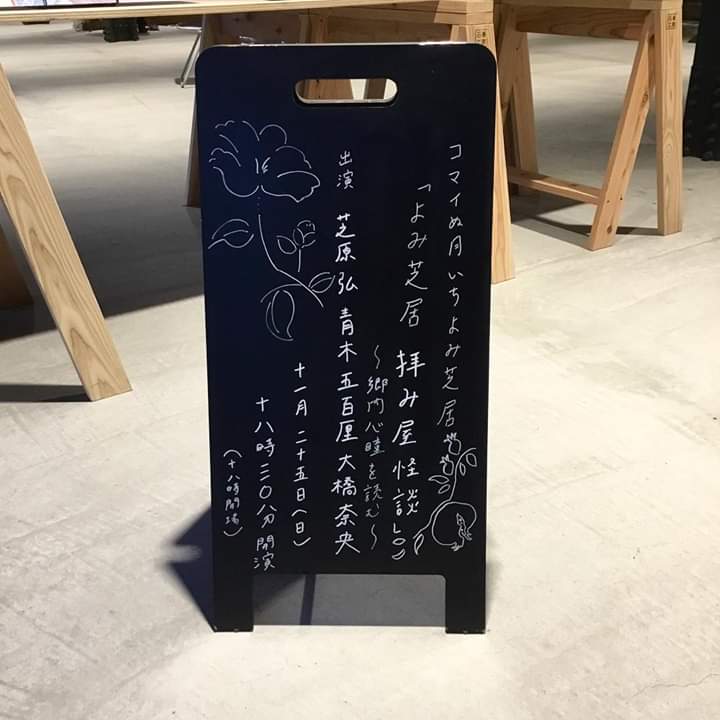 コマイぬ月いちよみ芝居
「よみ芝居 拝み屋怪談」
～郷内心瞳を読む～
出演 芝原弘 青木五百厘 大橋奈央
十一月二十五日(日)
十八時三〇分開演
(十八時開場)